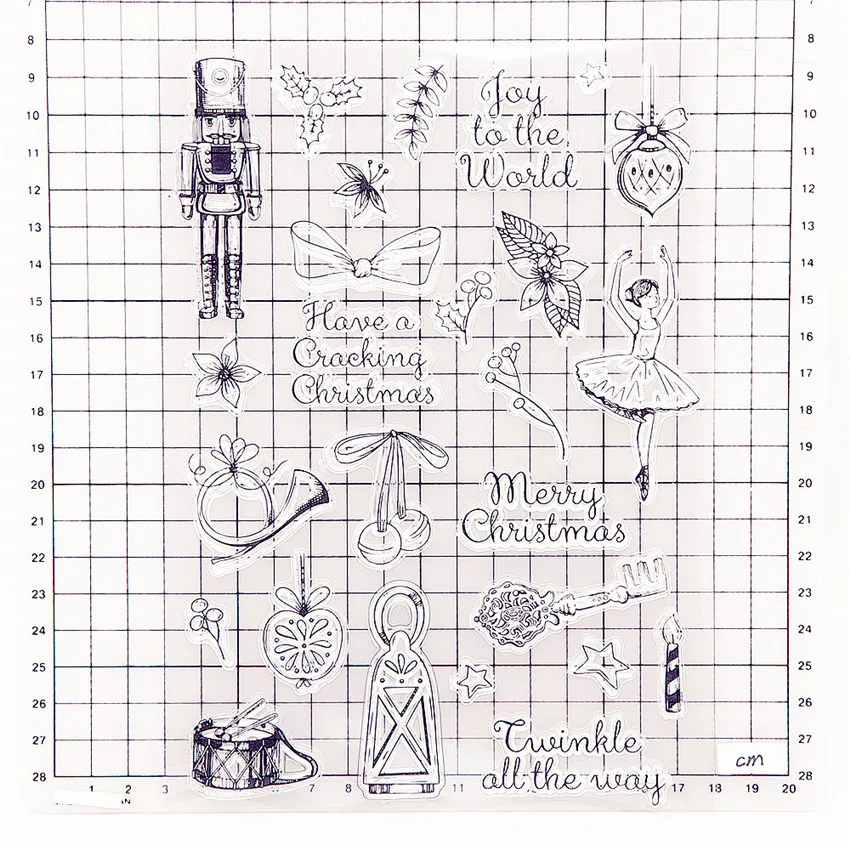 7
7
8
8
9
9
Joy
to the
World
10
10
11
11
12
12
13
13
14
14
15
15
Have a
Cracking
Christmas
16
16
17
17
18
18
19
19
20
20
Merry
Christmas
21
21
22
22
23
23
24
24
25
25
26
26
27
27
Twinkle
all the way
cm
28
28
1 2 3 7 8 11 17 18 19 20
AN